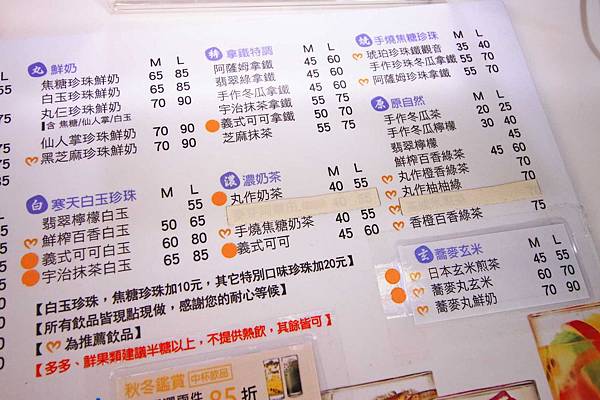 丸 鮮奶 M L
焦糖珍珠鮮奶 65 85
白玉珍珠鮮奶 65 85
丸仁珍珠鮮奶 70 90
【含 焦糖/仙人掌/白玉
仙人掌珍珠鮮奶 70 90
黑芝麻珍珠鮮奶 70 90
白 寒天白玉珍珠 M L
翡翠檸檬白玉 50 65
鮮榨百香白玉 60 80
義式可可白玉 60 80
宇治抹茶白玉 65 85
特 拿鐵特調 M L
阿薩姆拿鐵 45 60
翡翠綠拿鐵 45 60
手作冬瓜拿鐵 45 60
宇治抹茶拿鐵 55 75
義式可可拿鐵 50 70
芝麻抹茶 55 75
濃 濃奶茶 M L
丸作奶茶 40 55
手燒焦糖奶茶 40 55
義式可可 45 60
燒 手燒焦糖珍珠 M L
琥珀珍珠鐵觀音 35 40
手作珍珠冬瓜拿鐵 50 70
阿薩姆珍珠拿鐵 50 70
原 原自然 M L
手作冬瓜茶 20 25
手作冬瓜檸檬 30 40
翡翠檸檬 45
鮮榨百香綠茶 70
丸作橙香綠茶 70
丸作柚柚綠
香橙百香綠茶 75
玄 蕎麥玄米 M L
日本玄米煎茶 45 55
蕎麥玄米茶 60 70
蕎麥丸鮮奶 70 90
【白玉珍珠，焦糖珍珠加10元，其它特別口味珍珠加20元】
【所有飲品皆現點現做，感謝您的耐心等候】
【 為推薦飲品】
【多多、鮮果類建議半糖以上，不提供熱飲，其餘皆可】
秋冬鑑賞 中杯飲品
85折